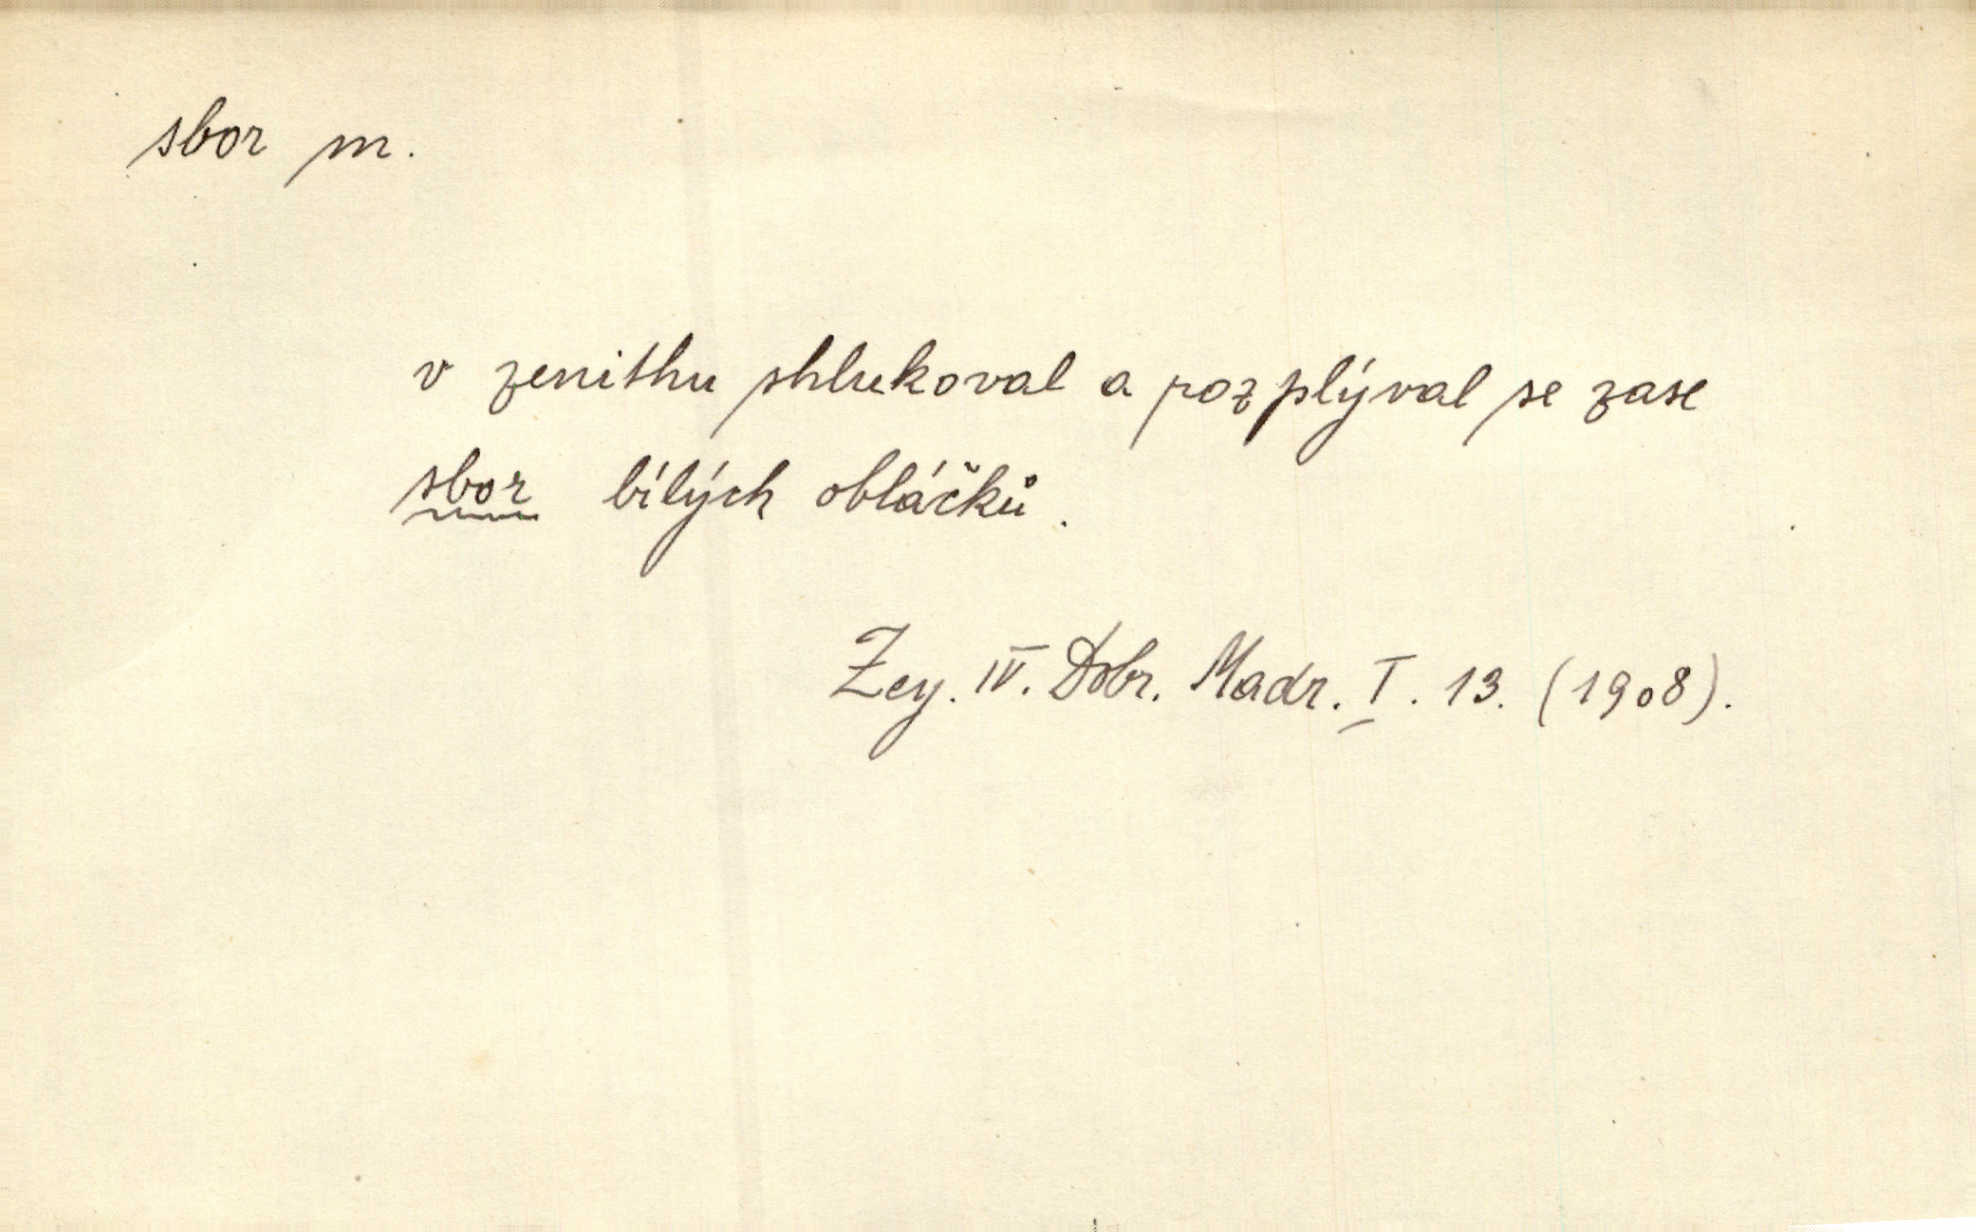 sbor m.
v zenithu shlukoval a rozplýval se zase
sbor bílých obláčků.
Zey. IV. Dobr. Madr. I. 13. (1908).